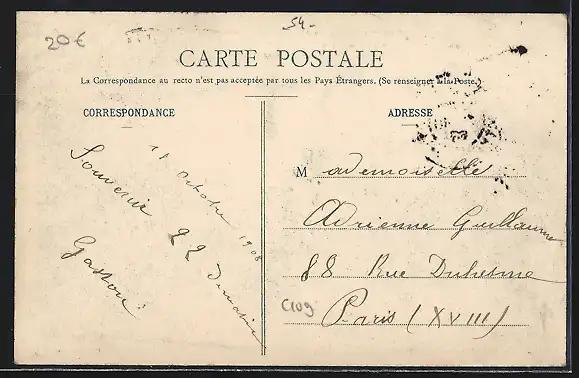 20€
54-
CARTE POSTALE
La Correspondance au recto n'est pas acceptée par tous les Pays Étrangers. (Se renseigner à la Poste.)
CORRESPONDANCE
ADRESSE
11 Octobre 1908
Souvenir
Gaston
Mademoiselle
Adrienne Guillaume
88 Rue Duhesme
Paris (XVIII)
C109